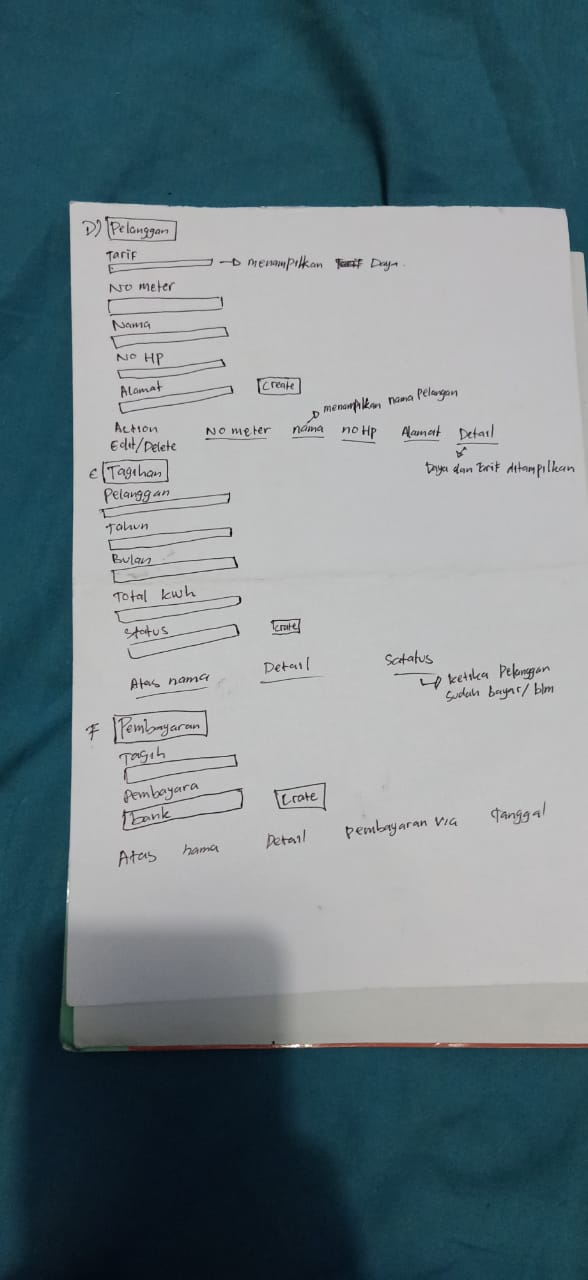 D) Pelanggan
Tarif
→ menampilkan Daya.
No meter
Nama
No HP
Alamat
Create
menampilkan nama Pelangan
Action No meter nama no Hp Alamat Detail
Edit/Delete
Daya dan Tarif ditampilkan
E Tagihan
Pelanggan
Tahun
Bulan
Total kwh
Status
Crate
Atas nama Detail Satatus
ketika Pelanggan
sudah bayar/blm
F Pembayaran
Tagih
Pembayara
bank
Crate
Atas nama Detail pembayaran via tanggal